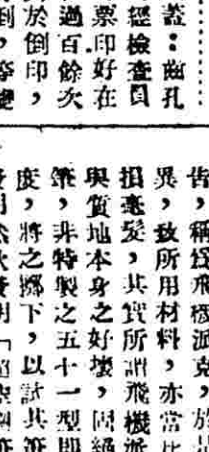 蓋：齒孔
經檢查員
票印好在
過百餘次
於倒印，
倒，
告，稱爲飛機派克，於
異，致所用材料，亦當比
損毫髮，其實所謂飛機派
與質地本身之好壞，固絕
筆，非特製之五十一型即
度，將之擲下，以試其筆